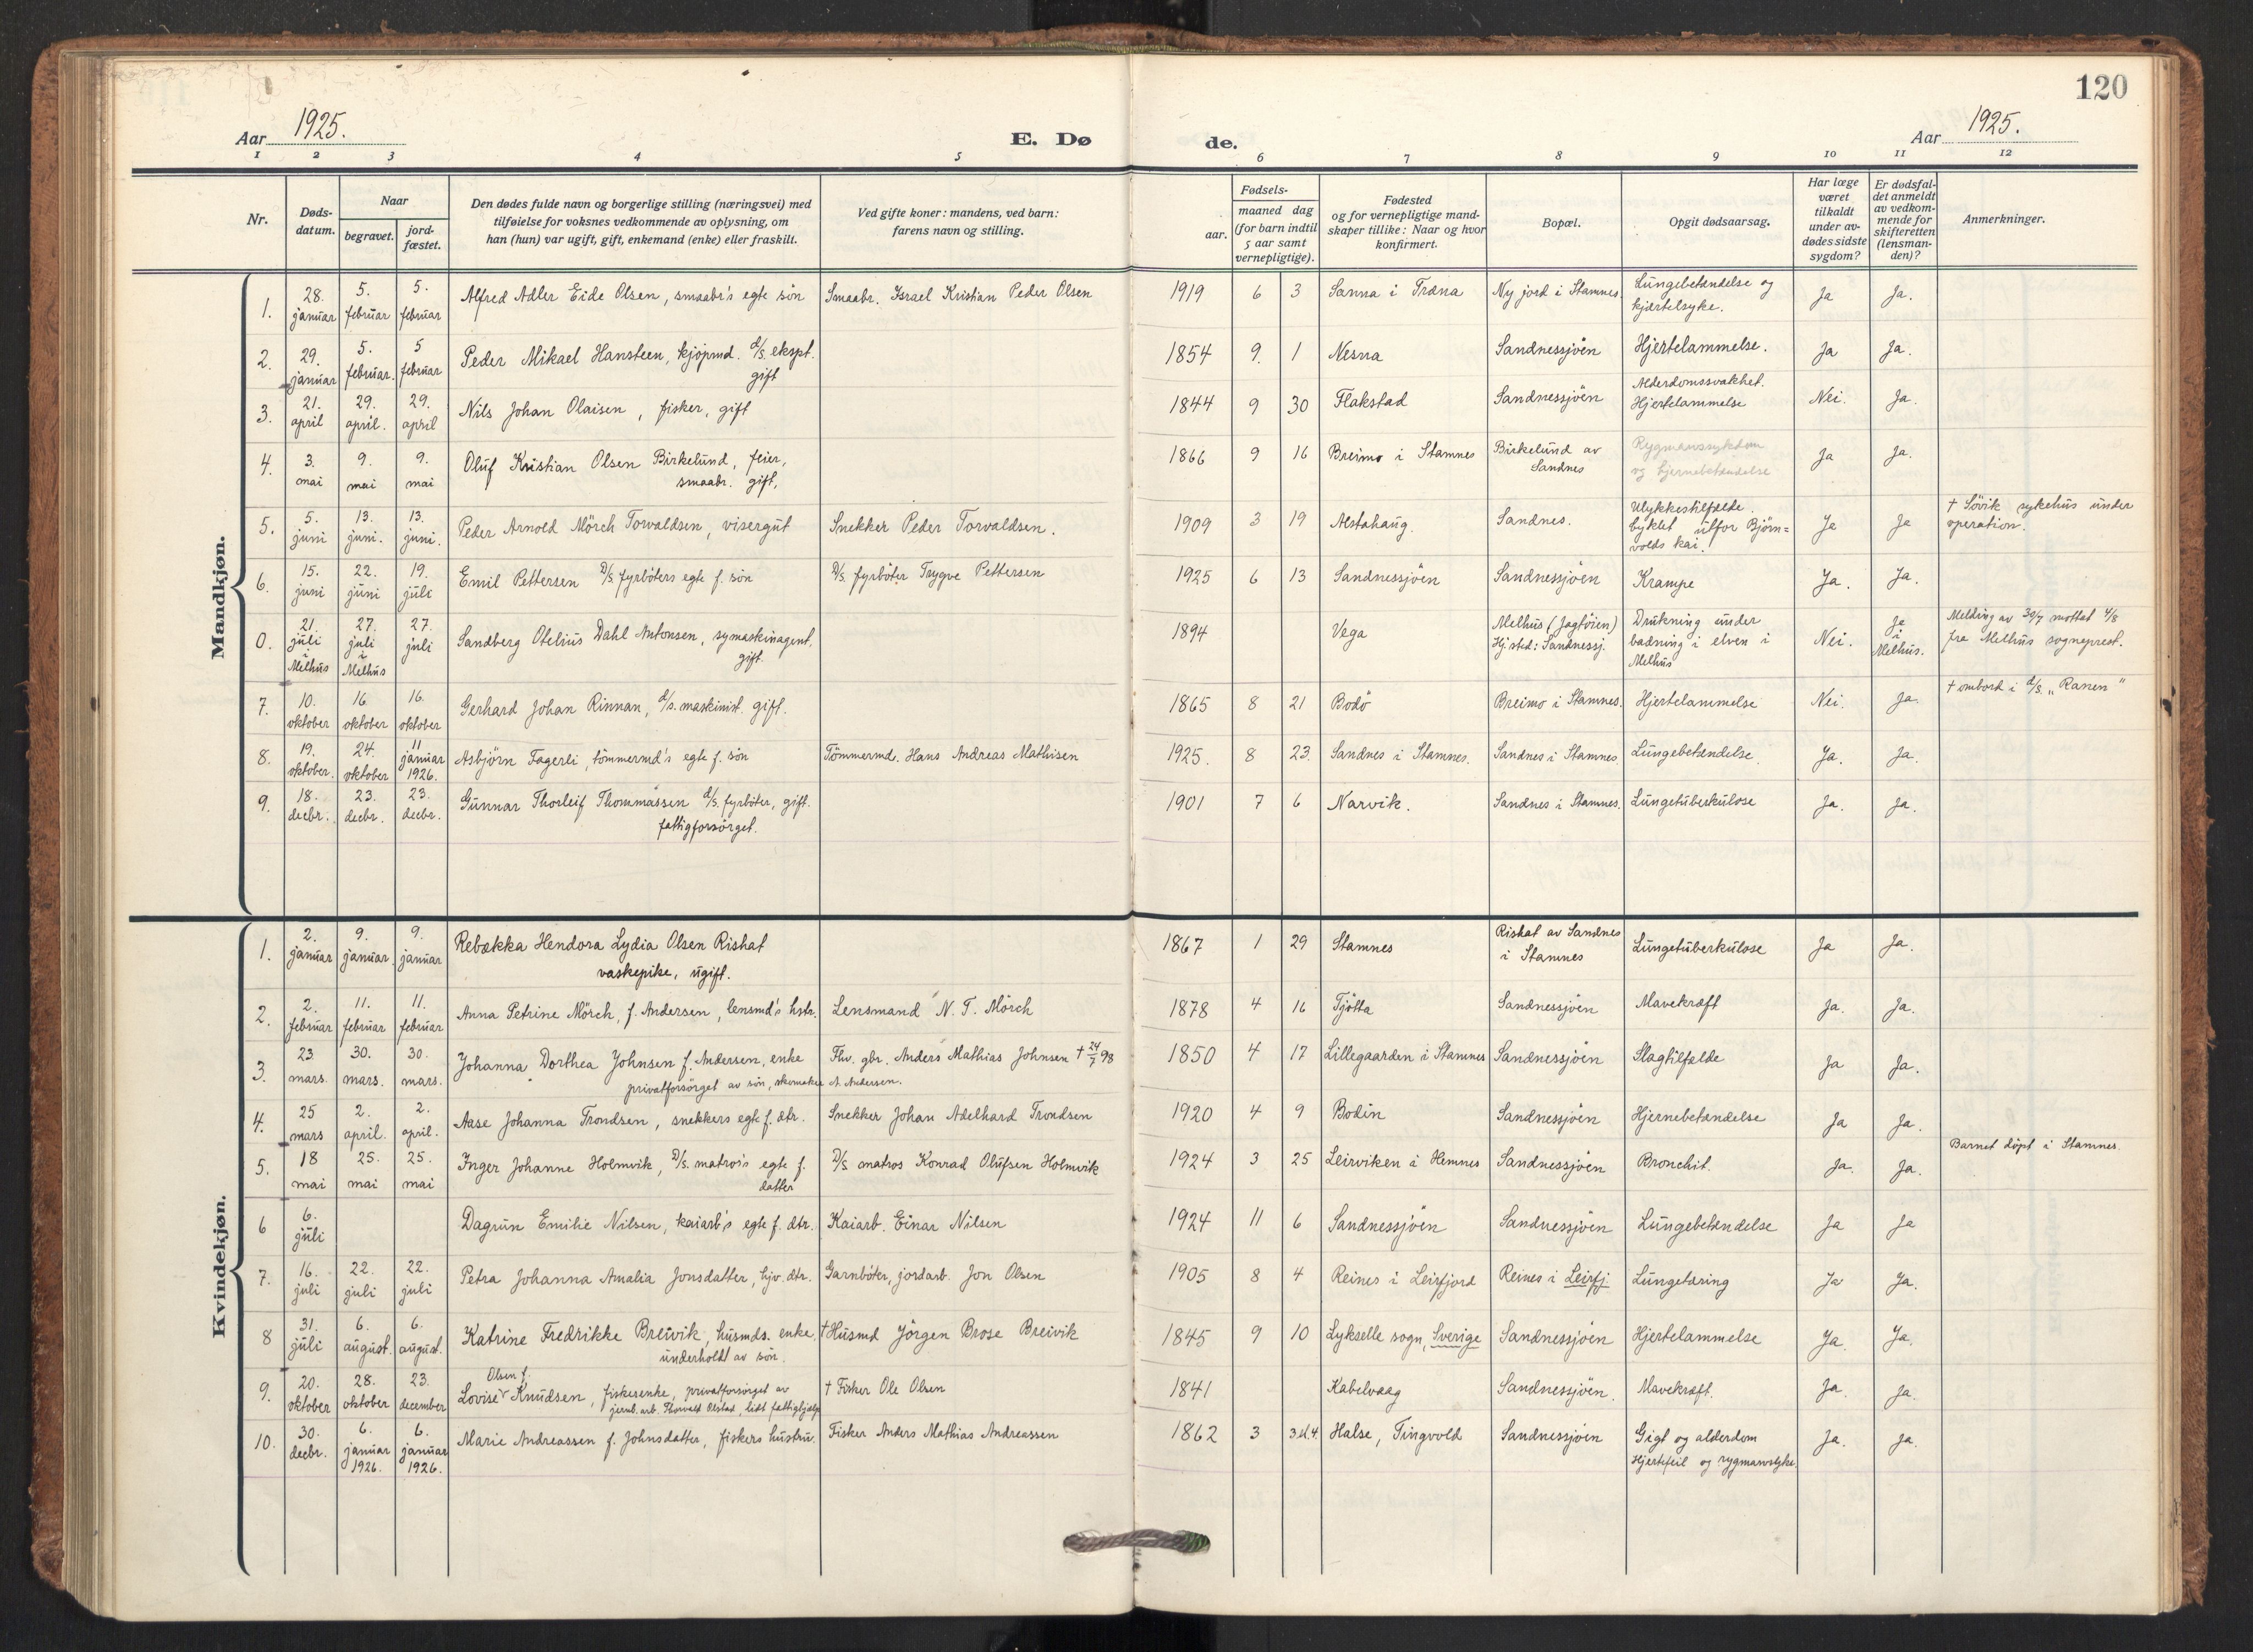 120
Aar 1925.
E. Dø
de.
Aar 1925.
1 2 3 4 5 6 7 8 9 10 11 12
Nr.
Døds-
datum.
Naar
begravet.
jord-
fæstet.
Den dødes fulde navn og borgerlige stilling (næringsvei) med
tilføielse for voksnes vedkommende av oplysning, om
han (hun) var ugift, gift, enkemand (enke) eller fraskilt.
Ved gifte koner: mandens, ved barn:
farens navn og stilling.
Fødsels-
aar.
maaned dag
(for barn indtil
5 aar samt
vernepligtige).
Fødested
og for vernepligtige mand-
skaper tillike: Naar og hvor
konfirmert.
Bopæl.
Opgit dødsaarsag.
Har læge
været
tilkaldt
under av-
dødes sidste
sygdom?
Er dødsfal-
det anmeldt
av vedkom-
mende for
skifteretten
(lensman-
den)?
Anmerkninger.
Mandkjøn.
1. 28. januar 5. februar 5. februar Alfred Adler Eide Olsen, smaabr's egte sön Smaabr. Israel Kristian Peder Olsen 1919 6 3 Sanna i Træna Ny jord i Stamnes. Lungebetændelse og
kjertelsyke. Ja Ja.
2. 29. januar 5. februar. 5 februar Peder Mikael Hansteen, kjöpmd. d/s. ekspt.
gift 1854 9. 1 Nesna Sandnessjöen Hjertelammelse. Ja Ja.
3. 21. april 29. april. 29. april Nils Johan Olaisen, fisker, gift 1844 9 30 Flakstad Sandnessjöen Alderdomssvakhet.
Hjertelammelse Nei. Ja.
4. 3. mai 9. mai 9. mai Oluf Kristian Olsen Birkelund, feier,
smaabr. gift, 1866 9 16 Breimo i Stamnes Birkelund av
Sandnes Rygmarvssykdom
og hjernebetændelse Ja Ja.
5. 5. juni 13. juni. 13. juni. Peder Arnold Mörch Torvaldsen, visergut Snekker Peder Torvaldsen. 1909 3 19 Alstahaug. Sandnes. Ulykkestilfælde.
Syklet utfor Björn=
volds kai. Ja Ja † Sövik sykehus under
operation.
6. 15. juni 22. juni 19. juli Emil Pettersen D/s. fyrböters egte f. sön D/s. fyrböter Trygve Pettersen 1925 6 13 Sandnessjöen Sandnessjöen Krampe Ja. Ja.
0. 21. juli i Melhus 27. juli i Melhus 27. juli Sandberg Otelius Dahl Antonsen, symaskinagent,
gift. 1894 Vega Melhus (Jagtöien)
Hj.sted: Sandnessj. Drukning under
badning i elven i
Melhus Nei. Ja i Melhus. Melding av 30/7 mottat 4/8
fra Melhus sogneprest.
7. 10. oktober 16. oktober 16. oktober Gerhard Johan Rinnan, d/s. maskinist. gift. 1865 8 21 Bodö Breimo i Stamnes. Hjertelammelse Nei. Ja. † ombord i d/s. „Ranen"
8. 19. oktober. 24. oktober 11 januar 1926. Asbjörn Fagerli, tömmermd's egte f. sön Tömmermd. Hans Andreas Mathisen 1925. 8 23. Sandnes i Stamnes. Sandnes i Stamnes. Lungebetændelse. Ja. Ja.
9. 18. decbr. 23. decbr. 23. decbr. Gunnar Thorleif Thommassen d/s. fyrböter, gift.
fattigforsörget. 1901 7 6 Narvik. Sandnes i Stamnes. Lungetuberkulose Ja. Ja.
Kvindekjøn.
1. 2. januar 9. januar. 9. januar Rebækka Hendora Lydia Olsen Rishat
vaskepike, ugift. 1867 1 29 Stamnes Rishat av Sandnes
i Stamnes Lungetuberkulose Ja Ja.
2. 2. februar 11. februar 11. februar Anna Petrine Mörch, f. Andersen, lensmd's hstr. Lensmand N. T. Mörch 1878 4 16 Tjötta Sandnessjöen Mavekræft Ja. Ja.
3. 23 mars. 30. mars. 30. mars. Johanna Dorthea Johnsen f. Andersen, enke Fhv. gbr. Anders Mathias Johnsen † 24/7 98
privatforsörget av sön, skomaker A. Andersen. 1850 4 17 Lillegaarden i Stamnes Sandnessjöen Slagtilfælde Ja Ja.
4. 25 mars 2. april. 2. april. Aase Johanna Trondsen, snekkers egte f. dtr. Snekker Johan Adelhard Trondsen 1920 4 9 Bodin Sandnessjöen Hjernebetændelse Ja Ja.
5. 18 mai 25. mai 25. mai Inger Johanne Holmvik, D/s. matros's egte f.
datter D/s. matros Konrad Olufsen Holmvik 1924 3 25 Leirviken i Hemnes Sandnessjöen Bronchit. Ja. Ja. Barnet döpt i Stamnes.
6 6. juli Dagrun Emilie Nilsen, kaiarb's egte f. dtr. Kaiarb. Einar Nilsen 1924 11 6 Sandnessjöen Sandnessjöen Lungebetændelse Ja Ja
7. 16. juli 22. juli 22. juli Petra Johanna Amalia Jonsdatter, hjv. dtr. Garnböter, jordarb. Jon Olsen 1905 8 4 Reines i Leirfjord Reines i Leirfj. Lungetæring Ja Ja.
8 31. juli 6. august. 6. august. Katrine Fredrikke Breivik, husmds. enke.
underholdt av sön. † Husmd Jörgen Brose Breivik 1845 9 10 Lykselle sogn, Sverige Sandnessjöen Hjertelammelse Ja. Ja.
9. 20. oktober 28. oktober 23. december Olsen f.
Lovise Knudsen, fiskerenke, privatforsörget av
jernb.arb. Thorvald Olstad, lidt fattighjælp † Fisker Ole Olsen 1841 Kabelvaag Sandnessjöen. Mavekræft. Ja. Ja.
10. 30. decbr. 6. januar 1926. 6. januar 1926. Marie Andreassen f. Johnsdatter, fiskers hustru. Fisker Anders Mathias Andreassen 1862 3 3.d.4. Halse, Tingvold Sandnessjöen Gigt og alderdom
Hjertefeil og rygmarvslyke. Ja. Ja.